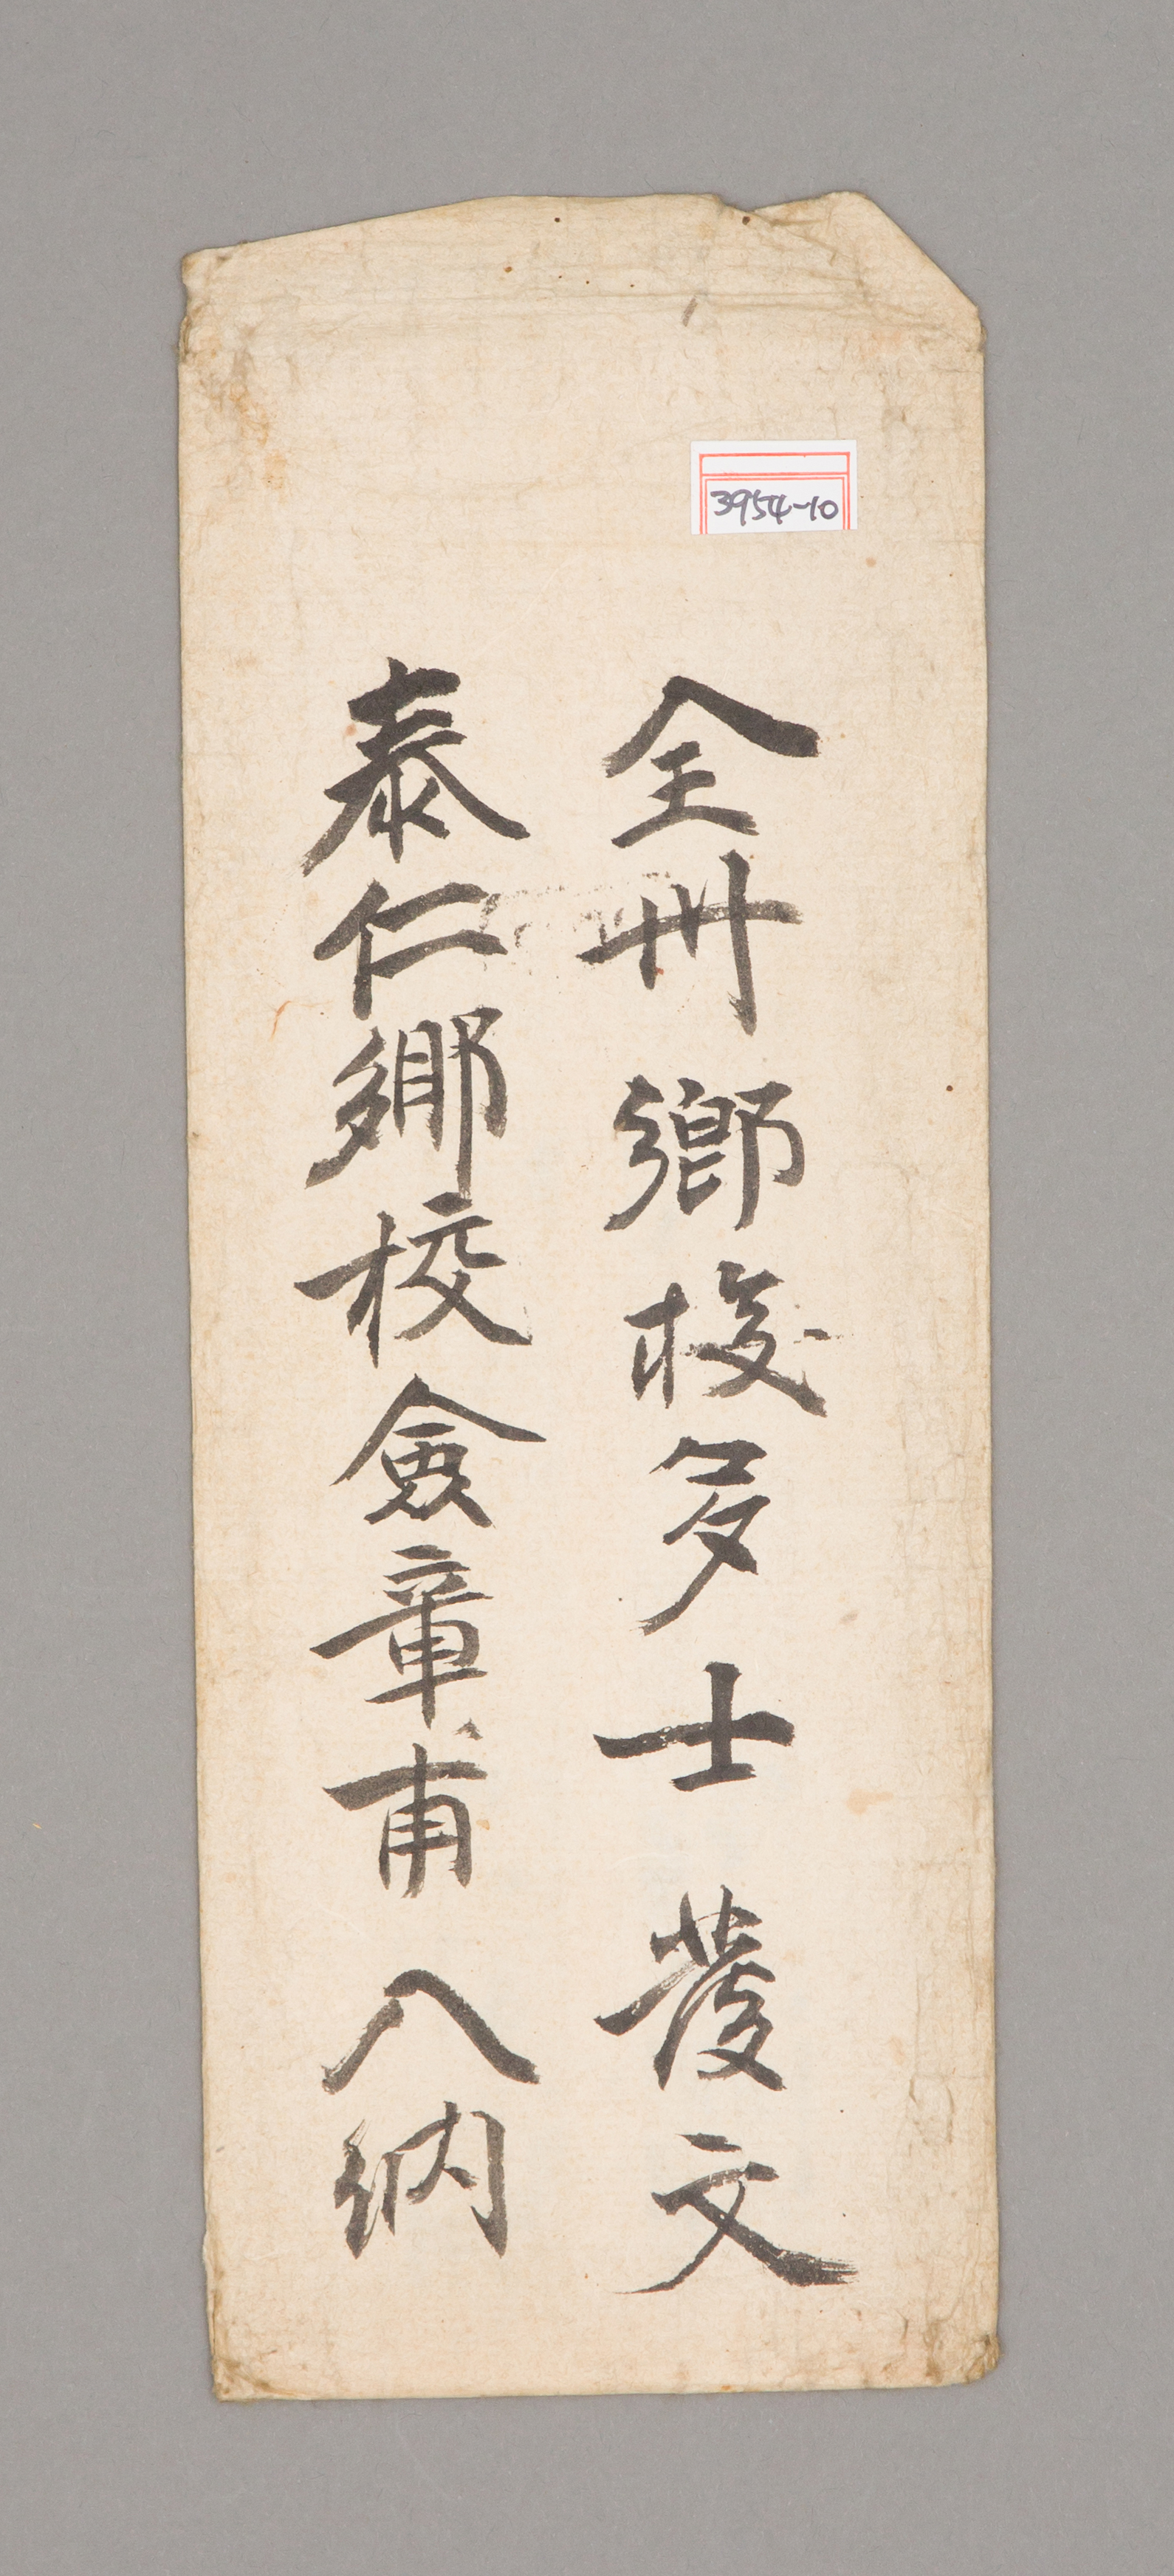 3954-10
全州鄕校多士 發文
泰仁鄕校僉章甫 入納